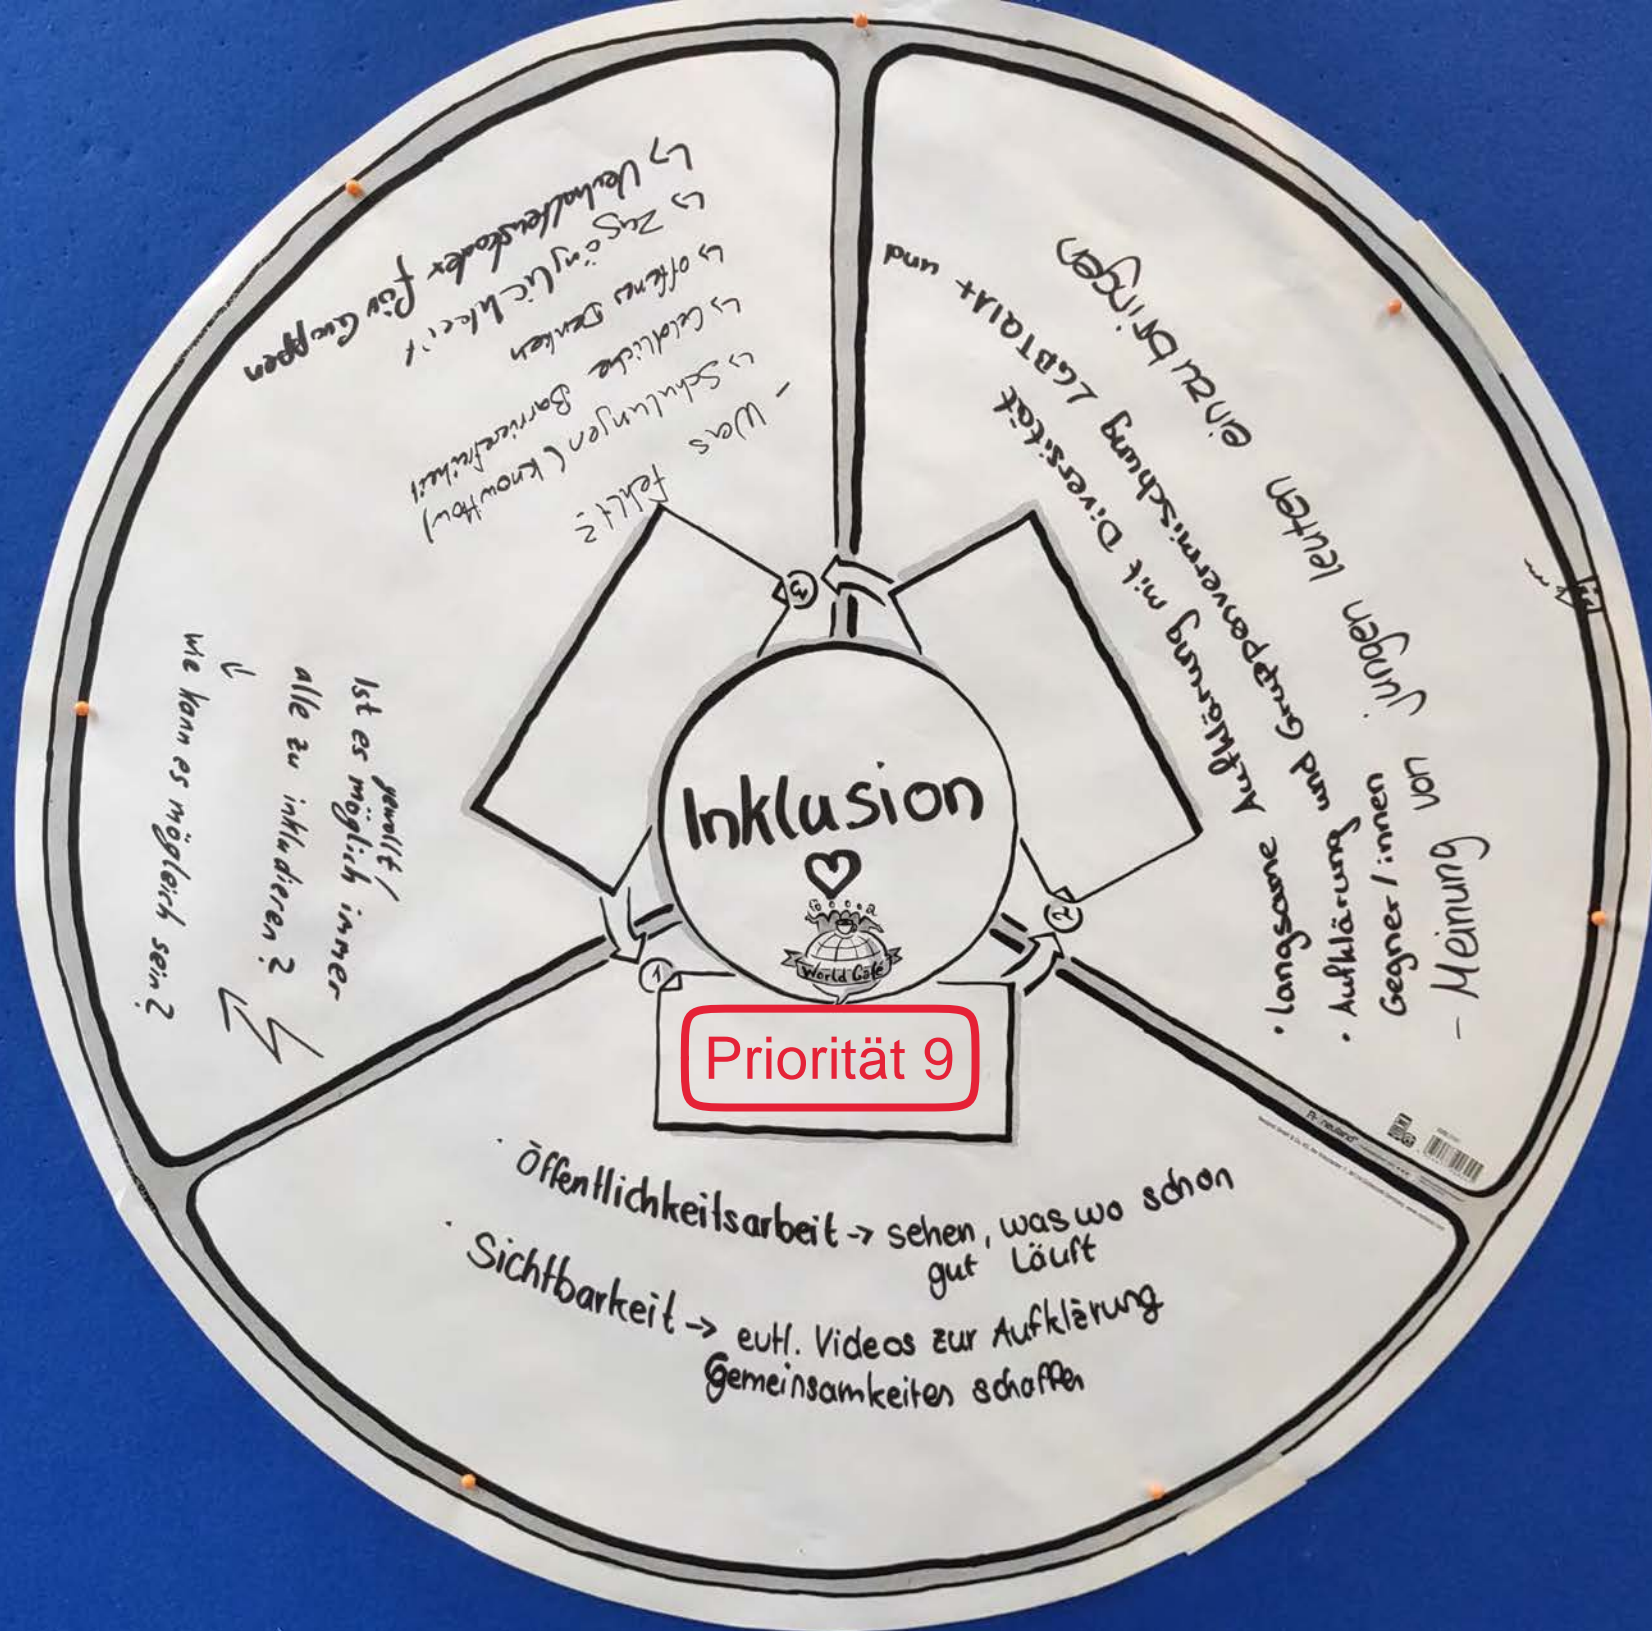 Inklusion
World Café
Priorität 9
1
· Öffentlichkeitsarbeit → sehen, was wo schon
gut läuft
· Sichtbarkeit → evtl. Videos zur Aufklärung
Gemeinsamkeiten schaffen
2
· langsame Aufklärung mit Diversität
· Aufklärung und Gruppenvermischung LGBTQIA+ und
Gegner/innen
- Meinung von jungen leuten einzubringen
neuland
3
- Was fehlt?
↳ Schulungen (knowHow)
↳ Geldliche Barrierefreiheit
↳ offenes Denken
↳ Zugänglichkeit
↳ Verhaltenskodex für Gruppen
gewollt/
Ist es möglich immer
alle zu inkludieren?
↓
wie kann es möglich sein?